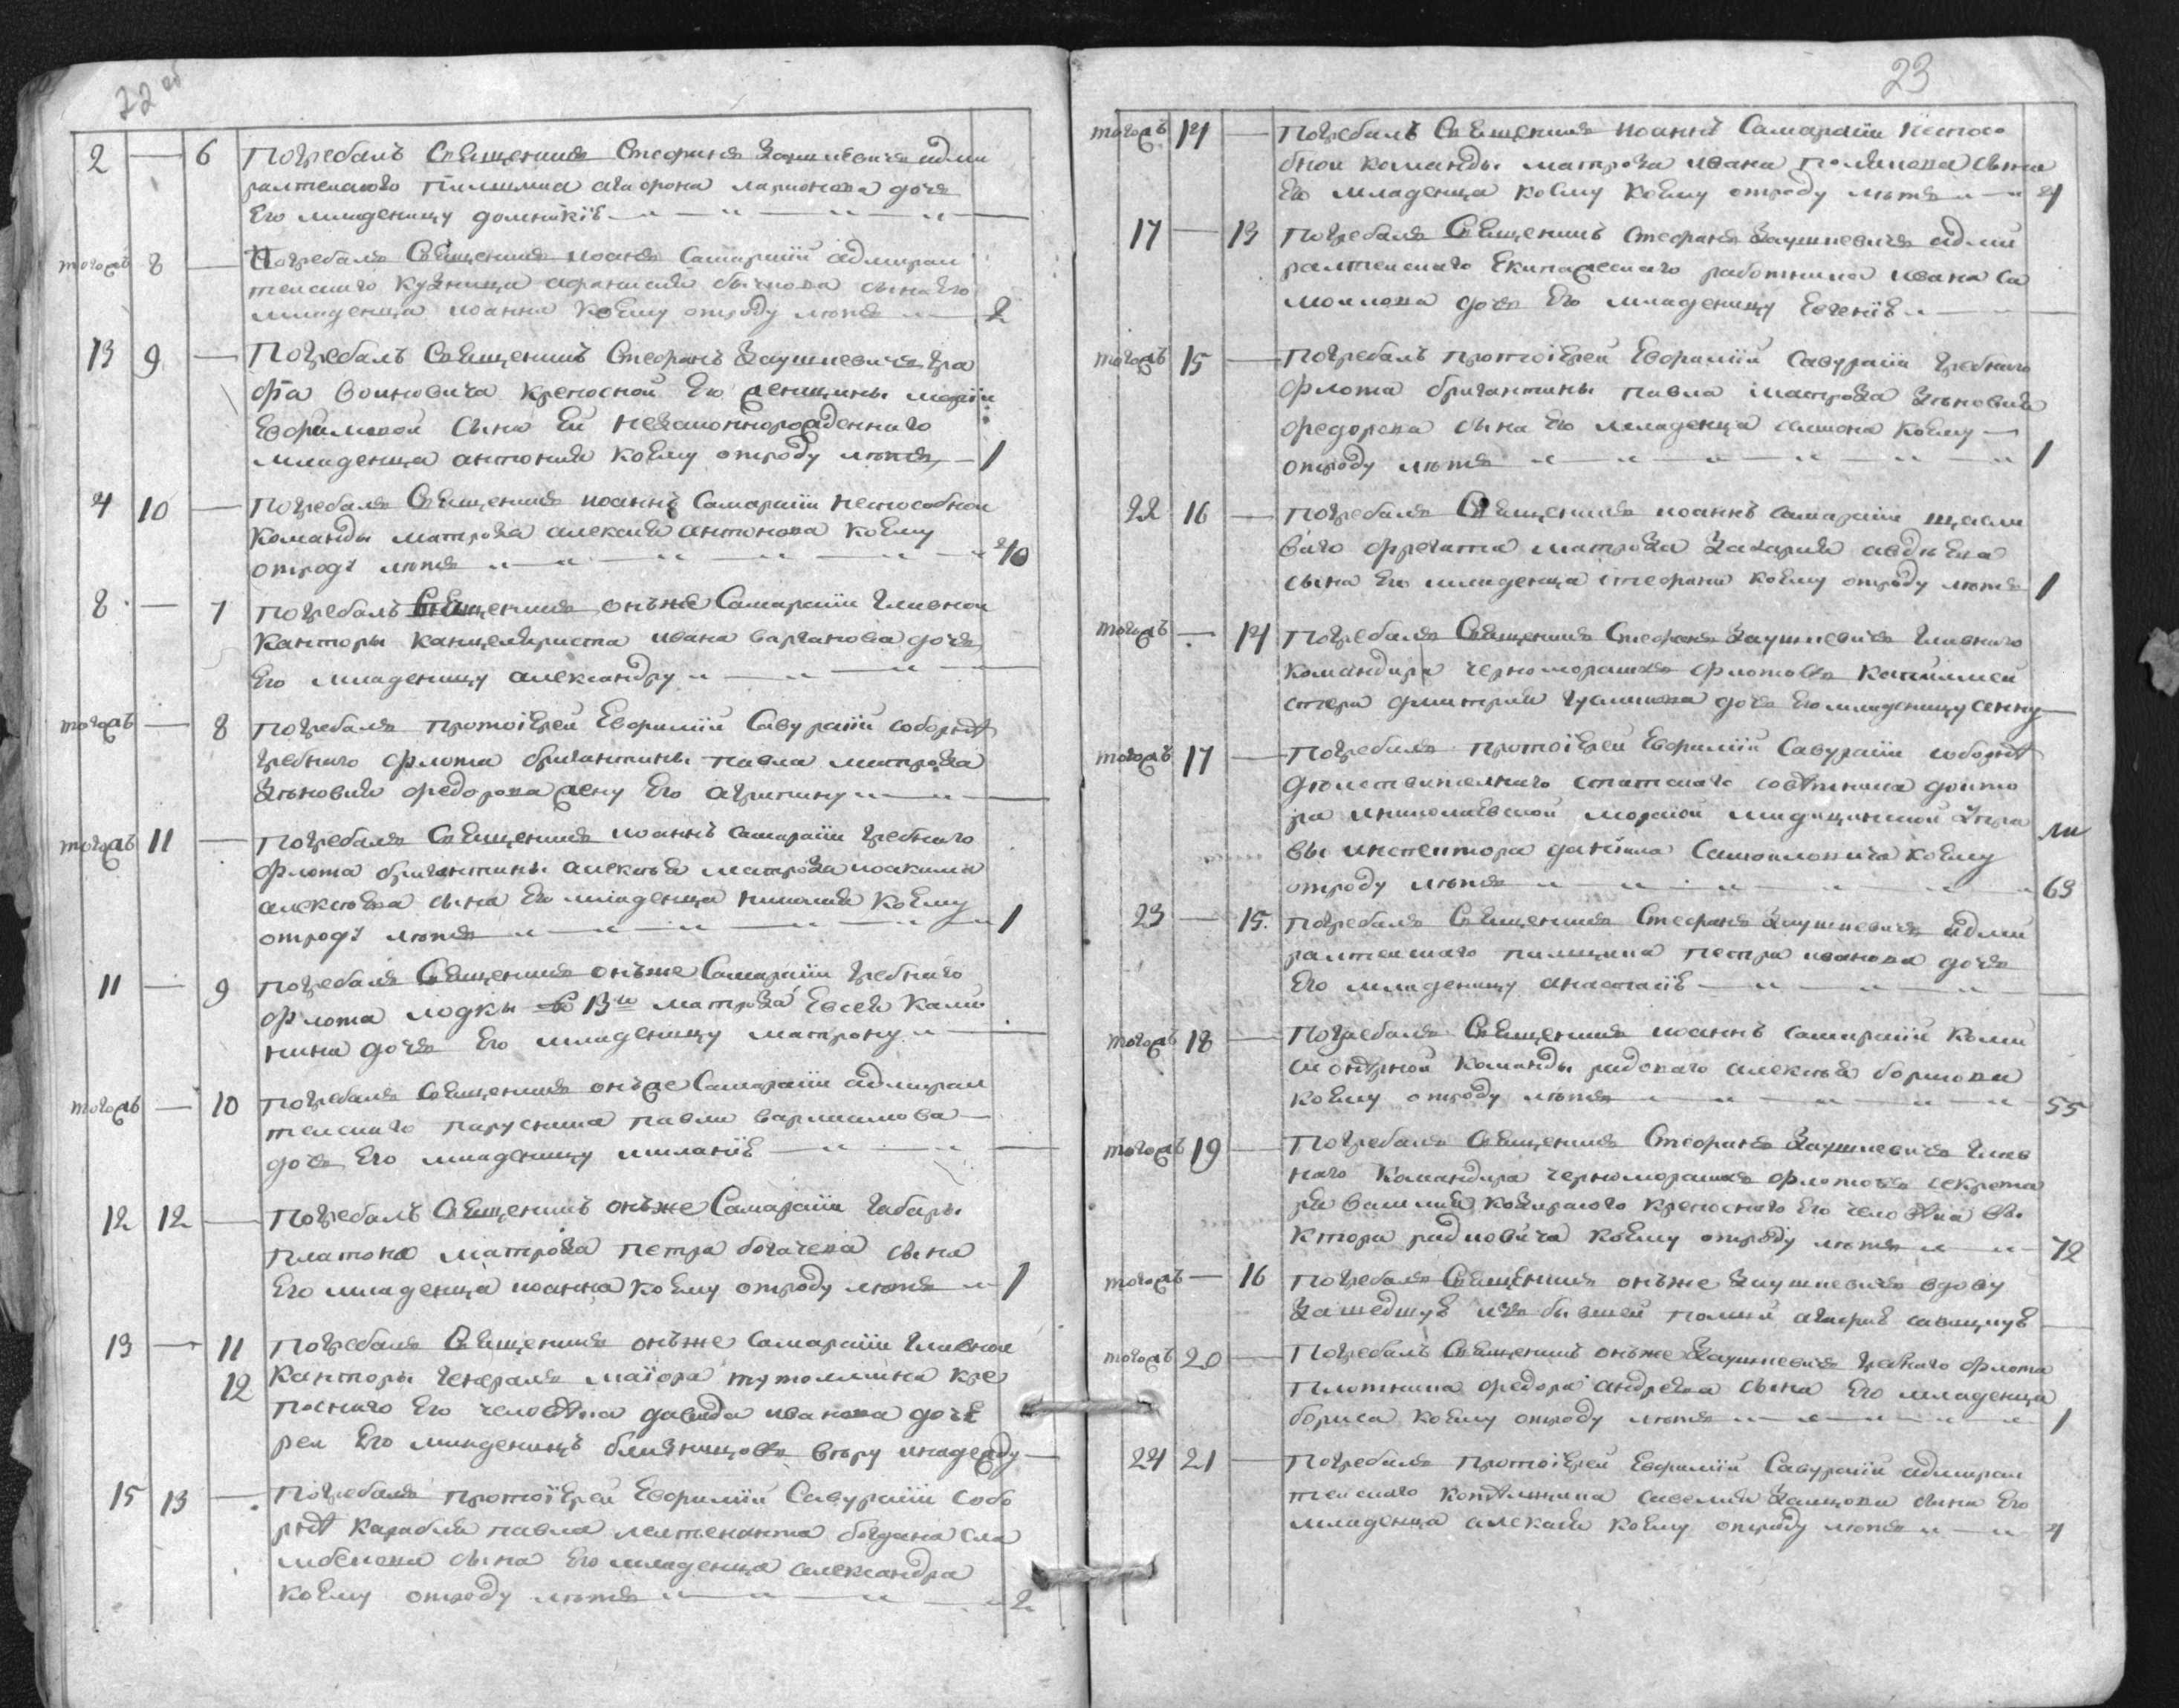 22 об
2 — 6 Погребалъ Священникъ Стефанъ Заушкевичъ адми
ралтескаго пилщика агафона ларионова дочь
Его младеницу домникію
тогожъ 8 — Погребалъ Священникъ иоаннъ Самарскій адмирал
тескаго кузнеца афанасия бычкова сына Его
младенца иоанна коему отроду летъ 2
13 9 — Погребалъ Священникъ Стефанъ Заушкевичъ гра
фа воиновича крепосной Его женщины маріи
Ефимовой сына Ей незаконнорожденнаго
младенца антония коему отроду летъ 1
4 10 — Погребалъ Священникъ иоаннъ Самарскій неспособной
команды матроза алексея антонова коему
отроду летъ 40
8 — 7 Погребалъ Священникъ онъже Самарскій главной
канторы канцеляриста ивана варганова дочь
Его младеницу александру
тогожъ — 8 Погребалъ протоіерей Евфимій Савурскій соборнѣ
гребнаго флота бригантины павла матроза
Зѣновия федорова жену Его агрипину
тогожъ 11 — Погребалъ Священникъ иоаннъ самарскій гребнаго
флота бригантины алексѣя матроза иоакима
алексѣева сына Его младенца николая коему
отроду летъ 1
11 — 9 Погребалъ Священникъ онъже Самарскій гребнаго
флота лодки 13и матроза Евсея кали
нина дочь Его младеницу матрону
тогожъ — 10 погребалъ Священникъ онъже Самарскій адмирал
тескаго парусника павла варламова
дочь Его младеницу миланію
12 12 — Погребалъ Священникъ онъже Самарскій габары
платона матроза петра богачева сына
Его младенца иоанна коему отроду летъ 1
13 — 11 Погребалъ Священникъ онъже Самарскій главной
12 канторы генералъ маіора тутолмина кре
посного Его человѣка давида иванова доче
рей Его младеницъ близницовъ вѣру инадежду
15 13 — Погребалъ протоіерей Евфимій Савурскій собо
рнѣ карабля павла лейтенанта богдана сла
сына Его младенца александра
коему отроду летъ 2
23
тогожъ 14 — Погребалъ Священникъ иоаннъ Самарскій неспосо
бной команды матроза ивана полякова сына
Его младенца коему коему отроду летъ 4
17 — 13 Погребалъ Священникъ Стефанъ Заушкевичъ адми
ралтескаго Екипажескаго работника ивана са
моилова дочь Его младеницу Евгенію
тогожъ 15 — Погребалъ протоіерей Евфимій Савурскій гребнаго
флота бригантины павла матроза Зѣновия
федорова сына Его младенца симона коему
отроду летъ 1
22 16 — Погребалъ Священникъ иоаннъ самарскій щасли
ваго фрегата матроза Захария авдѣева
сына Его младенца стефана коему отроду летъ 1
тогожъ — 14 Погребалъ Священникъ Стефанъ Заушкевичъ главнаго
командира черноморскихъ флотовъ капилмей
стера дмитрия гуслистова дочь Его младеницу анну
тогожъ 17 — Погребалъ протоіерей Евфимій Савурскій соборнѣ
действителнаго статскаго совѣтника докто
ра иниколаевской морской медицинской Упра
вы инспектора даніила Самоиловича коему
отроду летъ 63
23 — 15. Погребалъ Священникъ Стефанъ Заушкевичъ адми
ралтескаго пилщика петра иванова дочь
Его младеницу анастасію
тогожъ 18 — Погребалъ Священникъ иоаннъ самарскій коми
сионерной команды рядоваго алексѣя борисова
коему отроду летъ 55
тогожъ 19 — Погребалъ Священникъ Стефанъ Заушкевичъ глав
наго командира черноморскихъ флотовъ секрета
ря василия крепоснаго Его человѣка ви
ктора радковича коему отроду летъ 72
тогожъ — 16 Погребалъ Священникъ онъже Заушкевичъ вдову
Зашедшую изъ бывшей полши агафию савицкую
тогожъ 20 — Погребалъ Священникъ онъже Заушкевичъ гребнаго флота
плотника федора андреева сына Его младенца
бориса коему отроду летъ 1
24 21 — Погребалъ протоіерей Евфимій Савурскій адмирал
тескаго савелия сына Его
младенца алексия коему отроду летъ 4